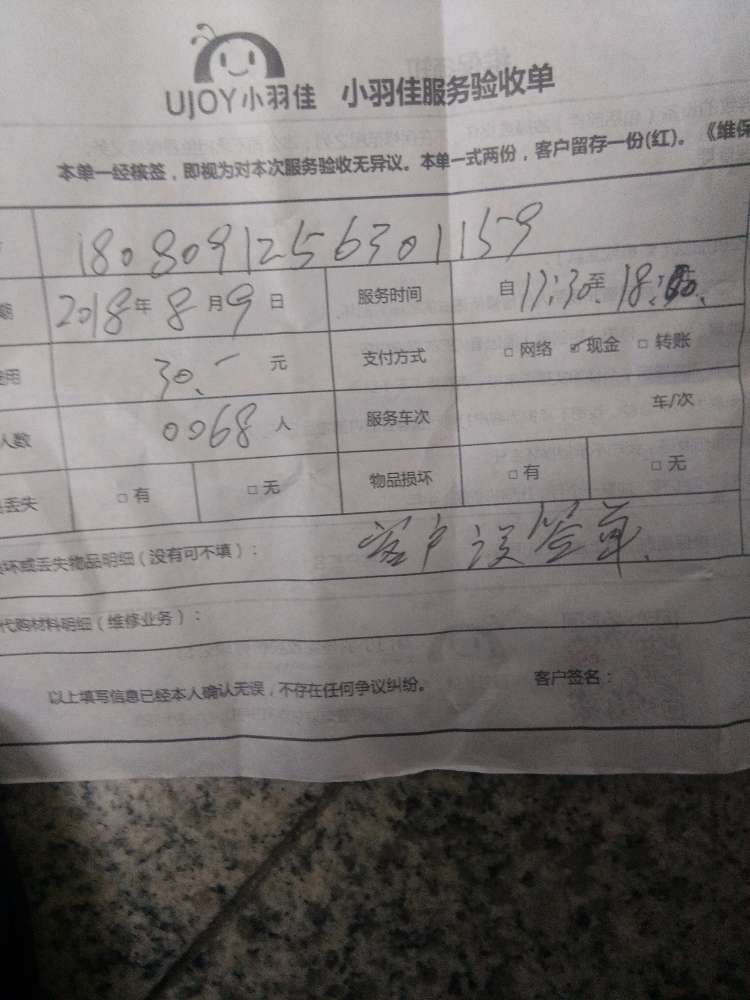 UJOY小羽佳 小羽佳服务验收单
本单一经核签，即视为对本次服务验收无异议。本单一式两份，客户留存一份(红)。《维保
1808091256301159
期 2018年8月9日 服务时间 自17:30至18:00.
用 30.- 元 支付方式 □网络 ☑现金 □转账
人数 0068 人 服务车次 车/次
丢失 □有 □无 物品损坏 □有 □无
坏或丢失物品明细（没有可不填）： 客户没签单.
代购材料明细（维修业务）：
以上填写信息已经本人确认无误，不存在任何争议纠纷。 客户签名：